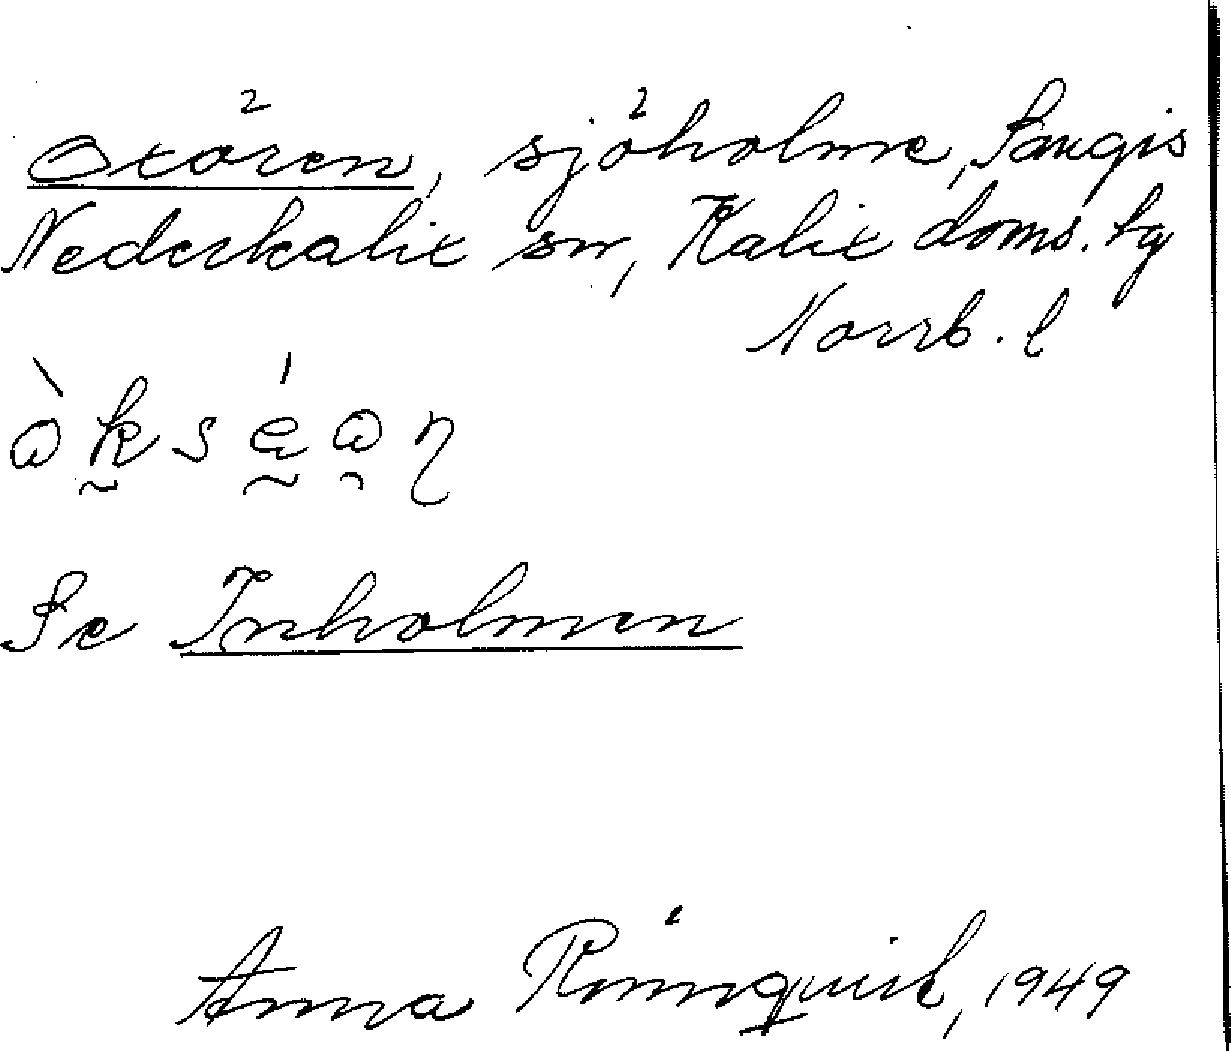 Oxören, sjöholme, Sangis
Nederkalix sn, Kalix doms. tg
Norrb. l
Se Inholmen
Anna Rönnqvist, 1949